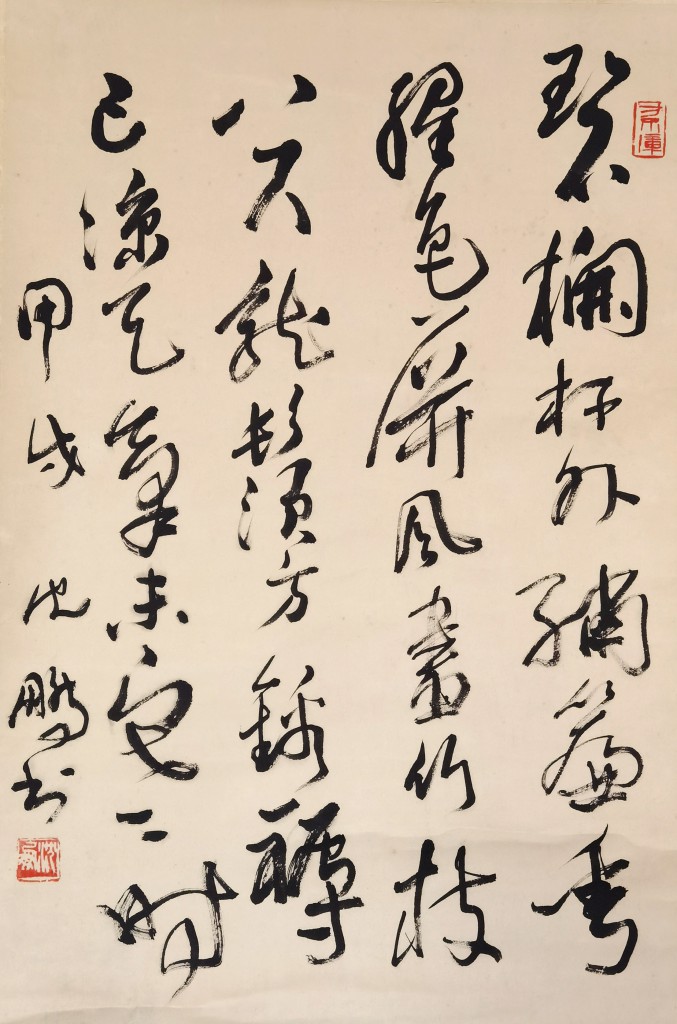 碧欄杆外繡簾垂
猩色屏風畫折枝
八尺龍鬚方錦褥
已涼天氣未寒時
甲戌 沈鵬書
沈鵬